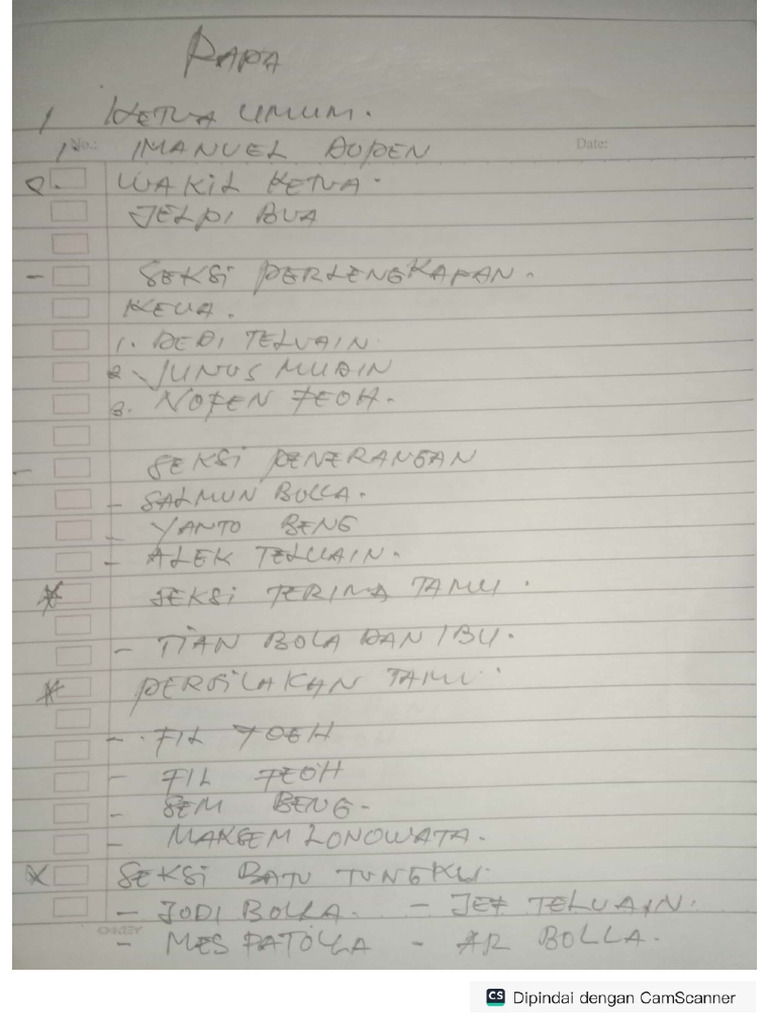 PAPA
1 KETUA UMUM.
No.: Date:
1. IMANUEL DUPEN
2. WAKIL KETUA.
JELPI BUA
- SEKSi PERLENGKAPAN.
KEUA.
1. DEDI TELUAIN
2. JUNUS MUDIN
3. NOFEN FEOH.
- SEKSi PENERANGAN
- SALMUN BOLLA.
- YANTO BENG
- ALEK TELUAIN.
* SEKSi TERIMA TAMU.
- TiAN BOLA DAN IBU.
* PERSiLAKAN TAMU.
- FIL FOEH
- FIL FEOH
- SEM BENG-
- MAKSEM LONOWATA.
* SEKSi BATU TUNGKU.
- JODI BOLLA. - JEF TELUAIN.
- MES PATOLLA - AR BOLLA.
CS Dipindai dengan CamScanner